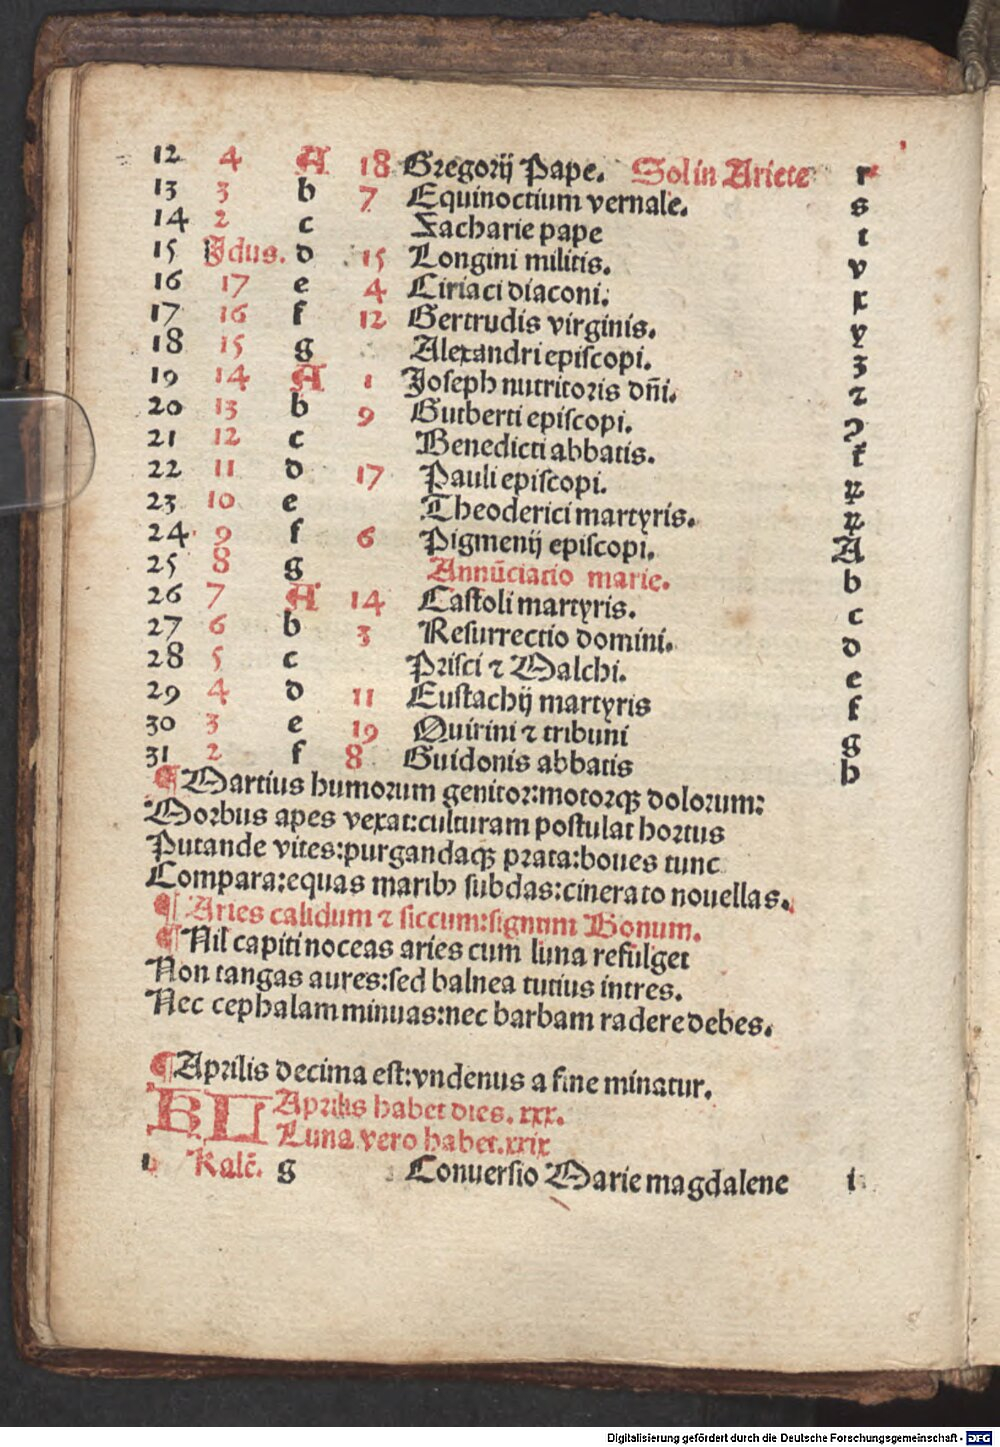 12 4 A 18 Gregorij Pape. Sol in Ariete r
13 3 b 7 Equinoctium vernale. s
14 2 c Zacharie pape t
15 Idus. d 15 Longini militis. v
16 17 e 4 Ciriaci diaconi. x
17 16 f 12 Gertrudis virginis. y
18 15 g Alexandri episcopi. z
19 14 A 1 Joseph nutritoris dñi. ⁊
20 13 b 9 Gutberti episcopi. ꝯ
21 12 c Benedicti abbatis.
22 11 d 17 Pauli episcopi.
23 10 e Theoderici martyris.
24 9 f 6 Pigmenij episcopi. A
25 8 g Annūciatio marie. b
26 7 A 14 Castoli martyris. c
27 6 b 3 Resurrectio domini. d
28 5 c Prisci ⁊ Malchi. e
29 4 d 11 Eustachij martyris f
30 3 e 19 Quirini ⁊ tribuni g
31 2 f 8 Guidonis abbatis h
¶ Martius humorum genitor:motorqꝫ dolorum:
Morbus apes vexat:culturam postulat hortus
Putande vites:purgandaqꝫ prata:boues tunc
Compara:equas maribꝰ subdas:cinera to nouellas.
¶ Aries calidum ⁊ siccum:signum Bonum.
¶ Nil capiti noceas aries cum luna refulget
Non tangas aures:sed balnea tutius intres.
Nec cephalam minuas:nec barbam radere debes.
¶ Aprilis decima est:vndenus a fine minatur.
KL Aprilis habet dies. xxx.
Luna vero habet.xxix
1 Kalē. g Conuersio Marie magdalene i
Digitalisierung gefördert durch die Deutsche Forschungsgemeinschaft - DFG